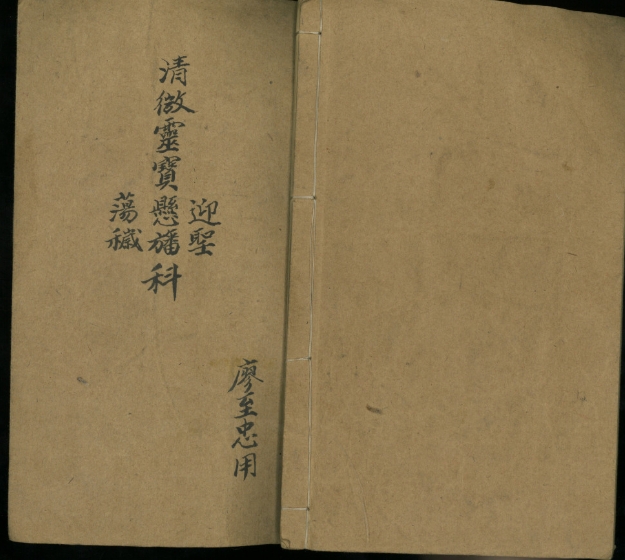 迎聖
清微靈寶懸旛科
蕩穢
廖至忠用